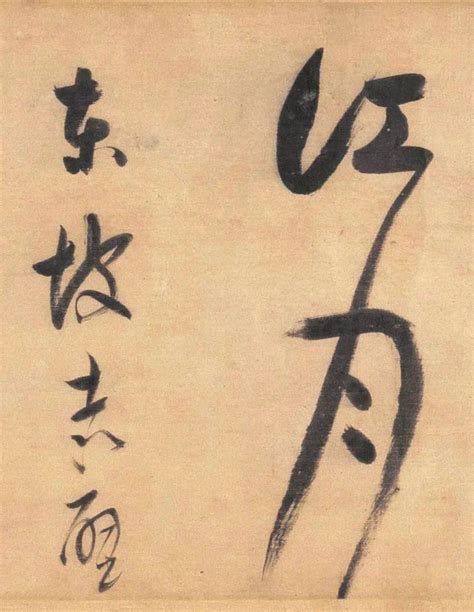 江月
東坡赤壁